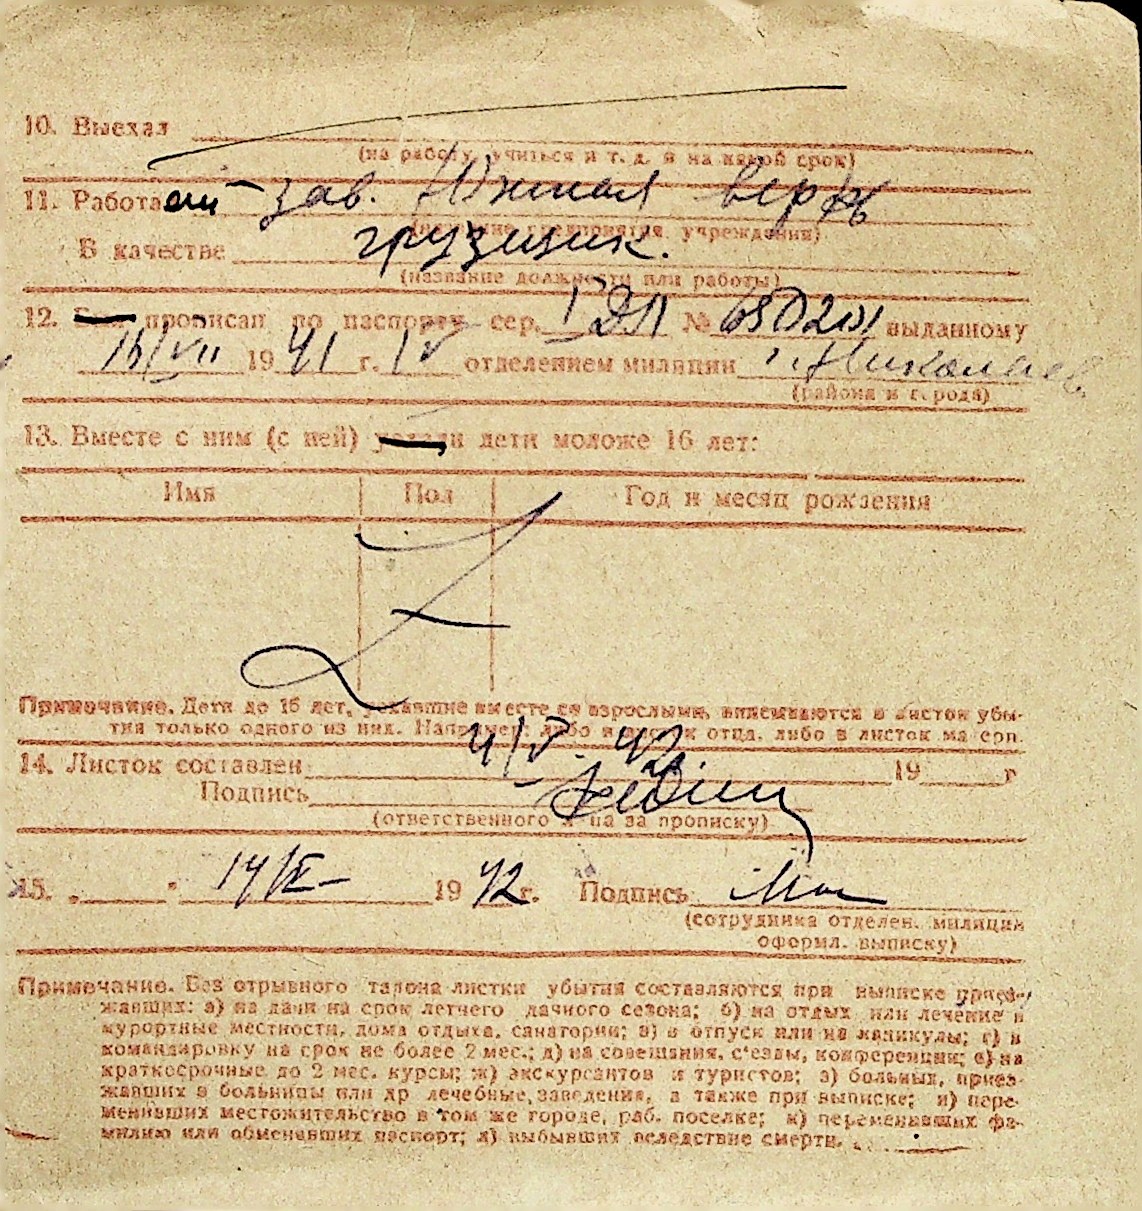 10. Выехал
(на работу, учиться и т. д. и на какой срок)
11. Работает зав. Южная верфь
(название предприятия, учреждения)
В качестве грузчик.
(название должности или работы)
12. Был прописан по паспорту сер. I ДП № 680201 выданному
16/VII 1941 г. IV отделением милиции г. Николаев.
(района и города)
13. Вместе с ним (с ней) уехали дети моложе 16 лет:
Имя Пол Год и месяц рождения
Примечание. Дети до 16 лет, уехавшие вместе со взрослыми, вписываются в листок убы-
тия только одного из них. Например: либо в листок отца, либо в листок матери.
14. Листок составлен 4/V. 42. 19 г
Подпись
(ответственного лица за прописку)
15. 14/IX 1942 г. Подпись
(сотрудника отделен. милиции
оформл. выписку)
Примечание. Без отрывного талона листки убытия составляются при выписке приез-
жавших: а) на дачи на срок летнего дачного сезона; б) на отдых или лечение в
курортные местности, дома отдыха, санатории; в) в отпуск или на каникулы; г) в
командировку на срок не более 2 мес.; д) на совещания, с'езды, конференции; е) на
краткосрочные до 2 мес. курсы; ж) экскурсантов и туристов; з) больных, приез-
жавших в больницы или др лечебные заведения, а также при выписке; и) пере-
менивших местожительство в том же городе, раб. поселке; к) переменивших фа-
милию или обменявших паспорт; л) выбывших вследствие смерти.